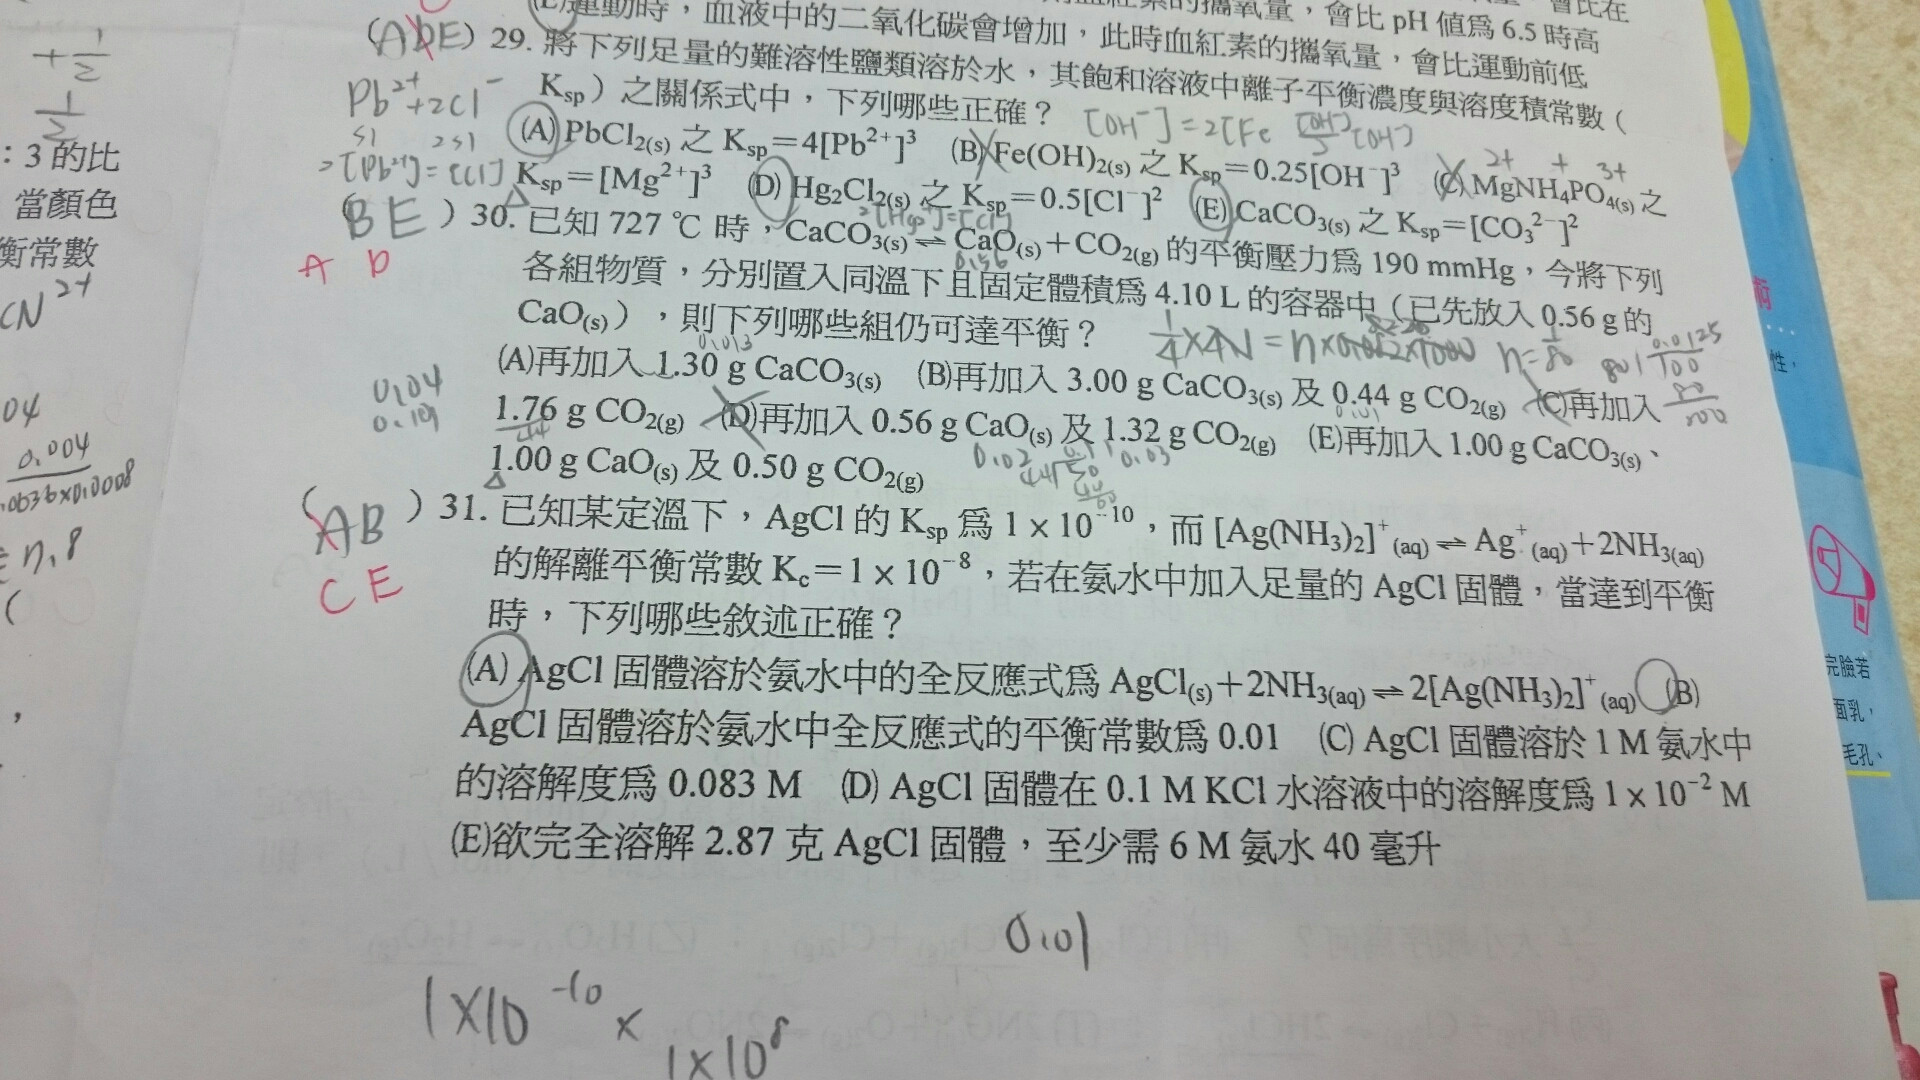 (E)運動時，血液中的二氧化碳會增加，此時血紅素的攜氧量，會比運動前低
的攜氧量，會比 pH 值為 6.5 時高
會比在
(ADE) 29. 將下列足量的難溶性鹽類溶於水，其飽和溶液中離子平衡濃度與溶度積常數（
Ksp）之關係式中，下列哪些正確？ [OH⁻]=2[Fe
Pb²⁺+2Cl⁻
s1 2s1
(A) PbCl2(s) 之 Ksp=4[Pb²⁺]³ (B) Fe(OH)2(s) 之 Ksp=0.25[OH⁻]³ (C) MgNH4PO4(s) 之
2+ + 3+
2[Pb²⁺]=[Cl]
Ksp=[Mg²⁺]³ (D) Hg2Cl2(s) 之 Ksp=0.5[Cl⁻]² (E) CaCO3(s) 之 Ksp=[CO3²⁻]²
(BE) 30. 已知 727 ℃ 時，CaCO3(s) ⇌ CaO(s)+CO2(g) 的平衡壓力為 190 mmHg，今將下列
A D
0.56
各組物質，分別置入同溫下且固定體積為 4.10 L 的容器中（已先放入 0.56 g 的
CaO(s)），則下列哪些組仍可達平衡？
0.013
(A)再加入 1.30 g CaCO3(s) (B)再加入 3.00 g CaCO3(s) 及 0.44 g CO2(g) (C)再加入
0.04
1.76 g CO2(g) (D)再加入 0.56 g CaO(s) 及 1.32 g CO2(g) (E)再加入 1.00 g CaCO3(s)、
44 0.02 0.03
1.00 g CaO(s) 及 0.50 g CO2(g)
(AB) 31. 已知某定溫下，AgCl 的 Ksp 為 1 x 10⁻¹⁰，而 [Ag(NH3)2]⁺(aq) ⇌ Ag⁺(aq)+2NH3(aq)
CE
的解離平衡常數 Kc=1 x 10⁻⁸，若在氨水中加入足量的 AgCl 固體，當達到平衡
時，下列哪些敘述正確？
(A) AgCl 固體溶於氨水中的全反應式為 AgCl(s)+2NH3(aq) ⇌ 2[Ag(NH3)2]⁺(aq) (B)
AgCl 固體溶於氨水中全反應式的平衡常數為 0.01 (C) AgCl 固體溶於 1 M 氨水中
的溶解度為 0.083 M (D) AgCl 固體在 0.1 M KCl 水溶液中的溶解度為 1 x 10⁻² M
(E)欲完全溶解 2.87 克 AgCl 固體，至少需 6 M 氨水 40 毫升
0.01
1x10⁻¹⁰ x
1x10⁸
+1/2
1/2
：3 的比
當顏色
衡常數
CN²⁺
04
0.004
n.8
性，
完臉若
面乳，
毛孔、